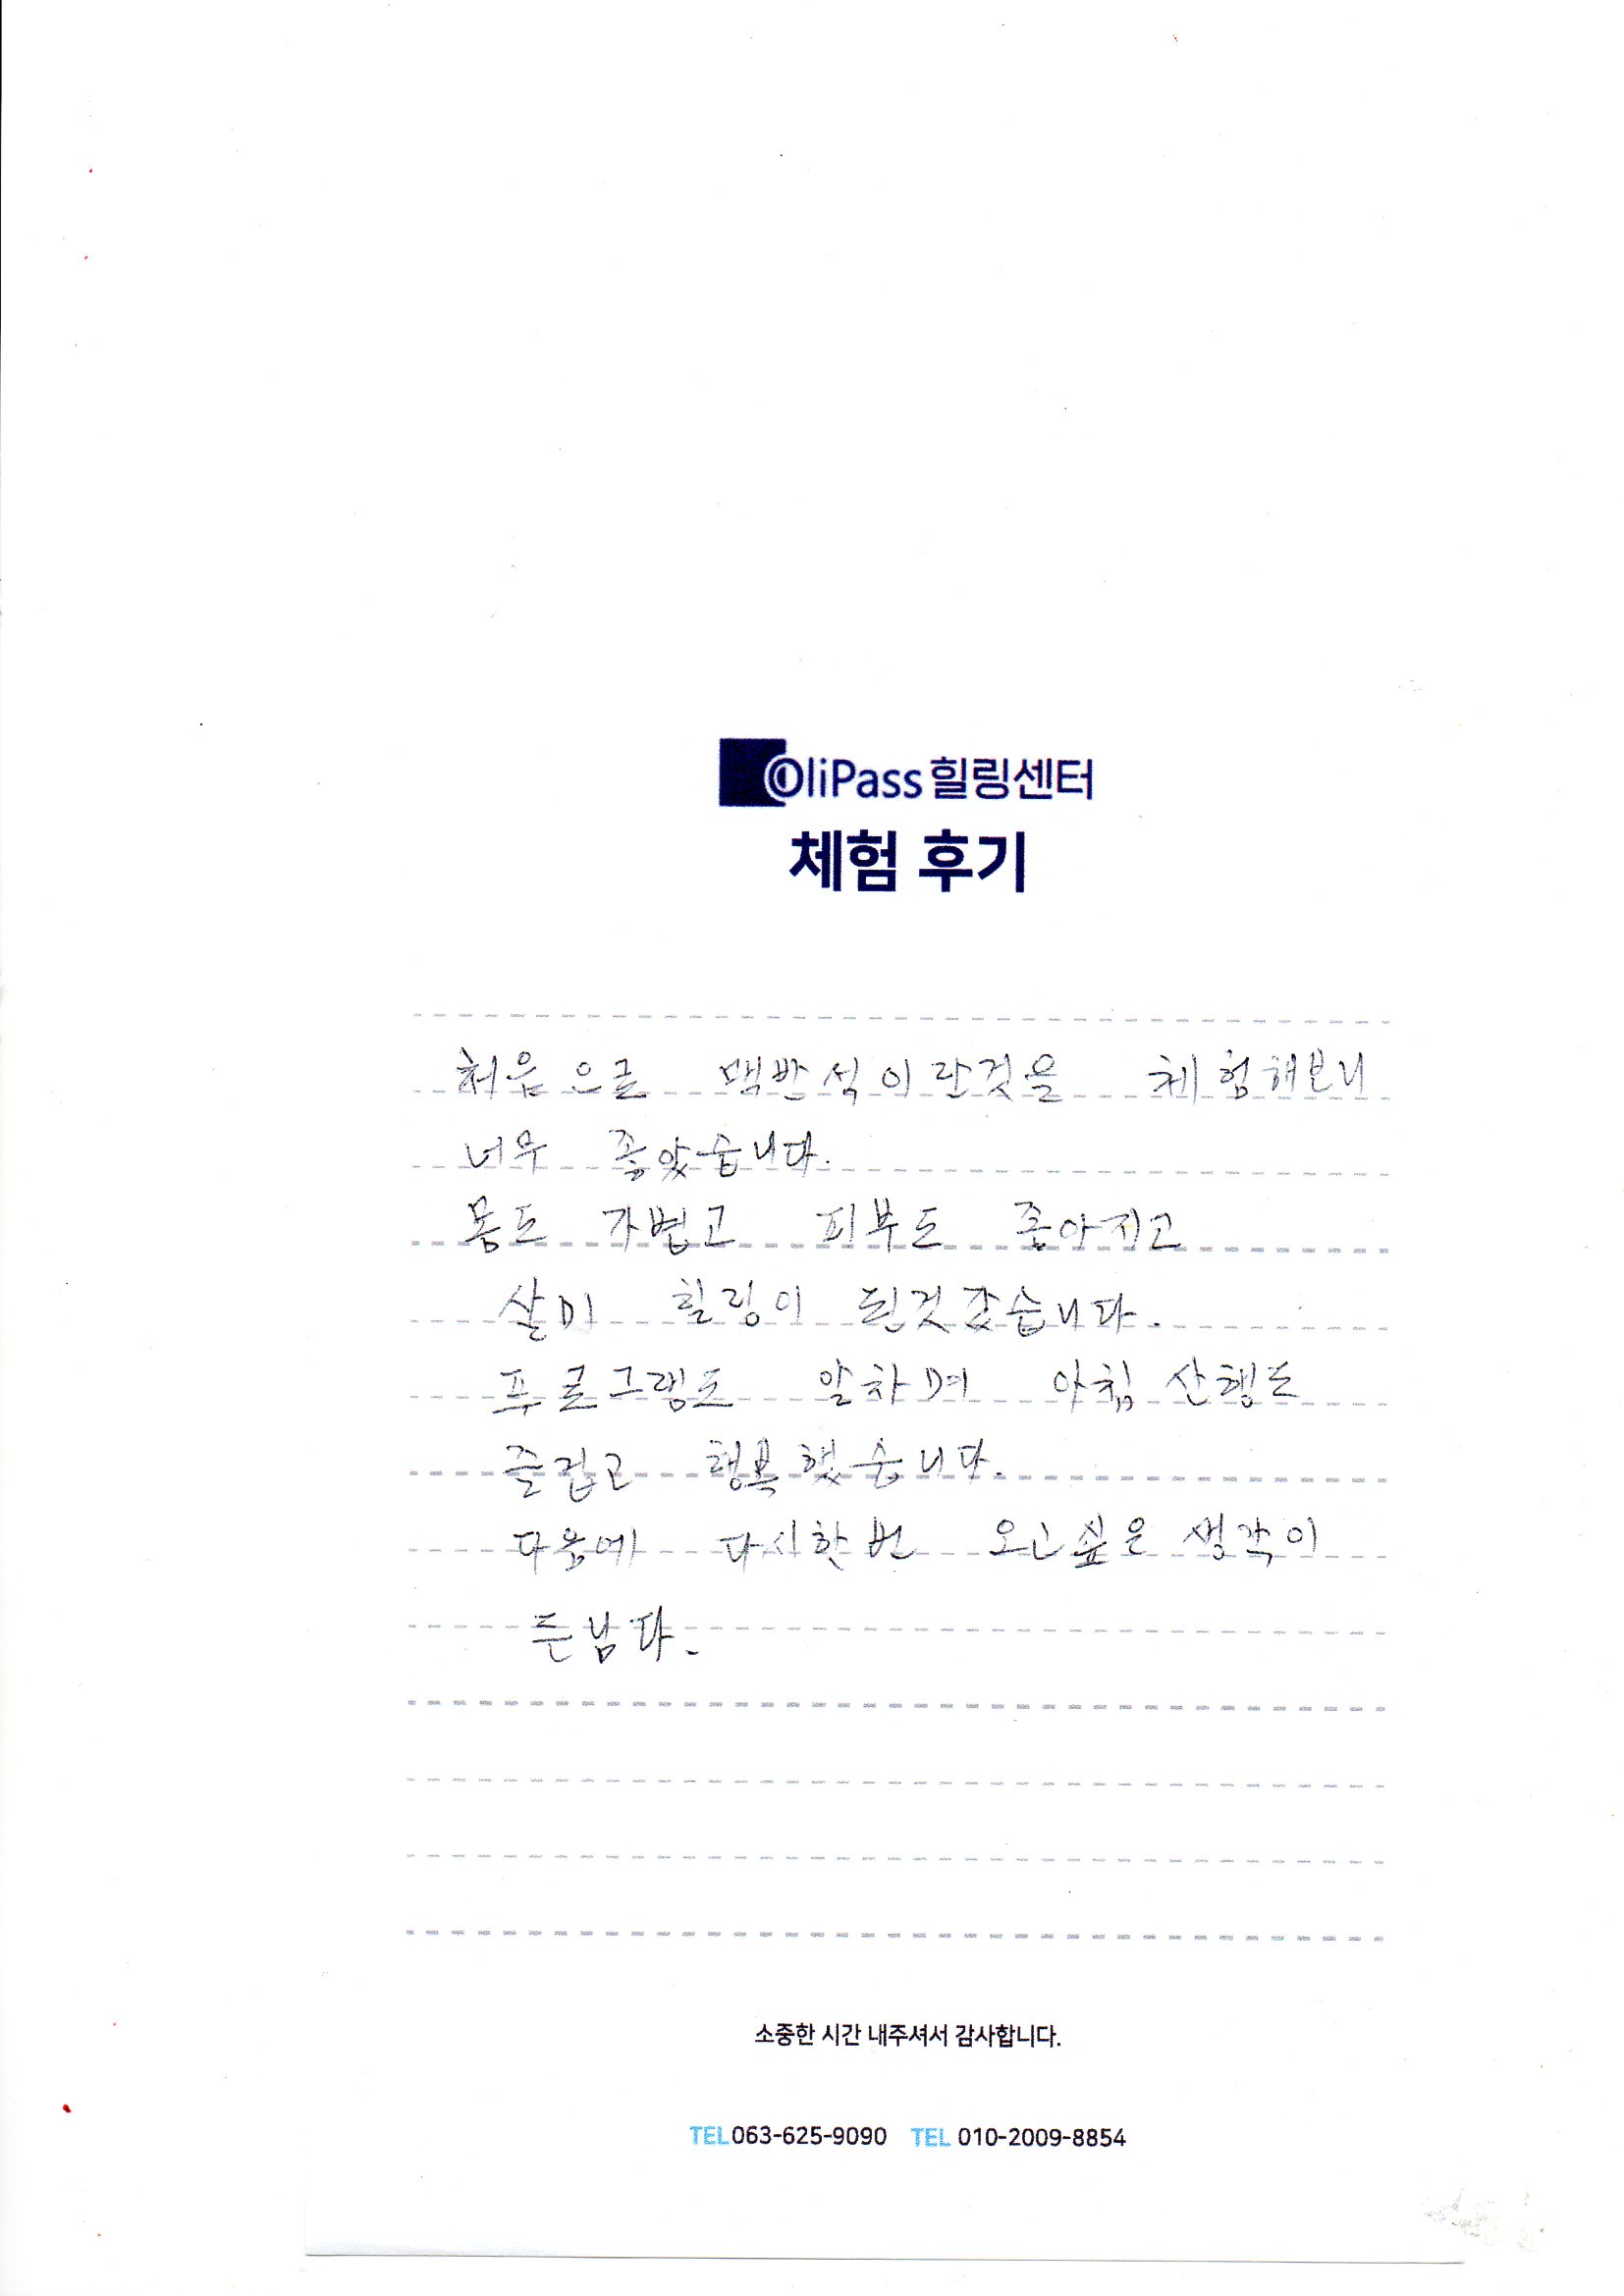 OliPass 힐링센터
체험 후기
처음으로 맥반석이란것을 체험해보니
너무 좋았습니다.
몸도 가볍고 피부도 좋아지고
살미 힐링이 된것 같습니다.
프로그램도 알차며 아침 산행도
즐겁고 행복했습니다.
다음에 다시한번 오고싶은 생각이
든님다.
소중한 시간 내주셔서 감사합니다.
TEL 063-625-9090 TEL 010-2009-8854